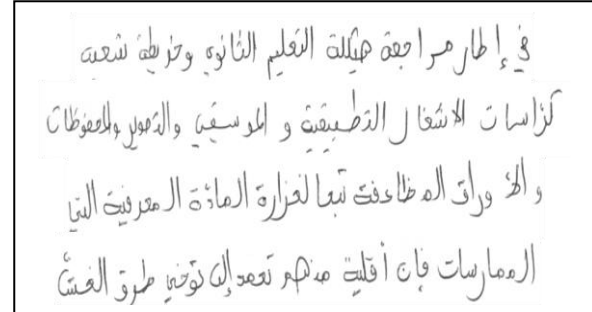 في إطار مراجعة هيكلة التعليم الثانوي وخريطة شعبه
كراسات الاشغال التطبيقية و الموسيقى والتصوير والمحفوظات
و الأوراق المضاعفة تبعا لغزارة المادة المعرفية التي
الممارسات فإن أقلية منهم تعمد إلى توخي طرق الغش